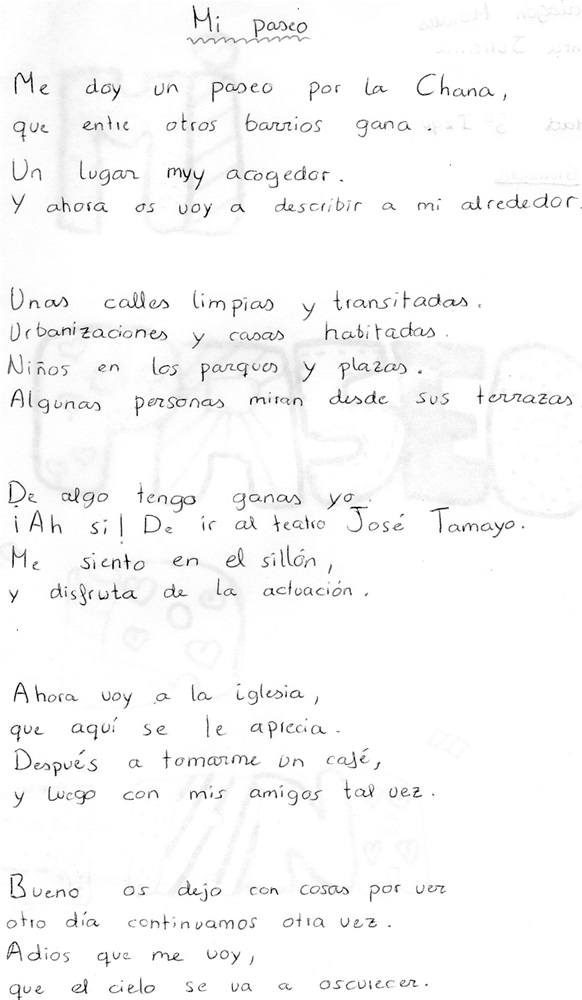 Mi paseo
Me doy un paseo por la Chana,
que entre otros barrios gana.
Un lugar myy acogedor.
Y ahora os voy a describir a mi alrededor.
Unas calles limpias y transitadas.
Urbanizaciones y casas habitadas.
Niños en los parques y plazas.
Algunas personas miran desde sus terrazas
De algo tengo ganas yo.
¡Ah si! De ir al teatro José Tamayo.
Me siento en el sillón,
y disfruta de la actuación.
Ahora voy a la iglesia,
que aquí se le aprecia.
Después a tomarme un café,
y luego con mis amigos tal vez.
Bueno os dejo con cosas por ver
otro día continuamos otra vez.
Adios que me voy,
que el cielo se va a oscurecer.